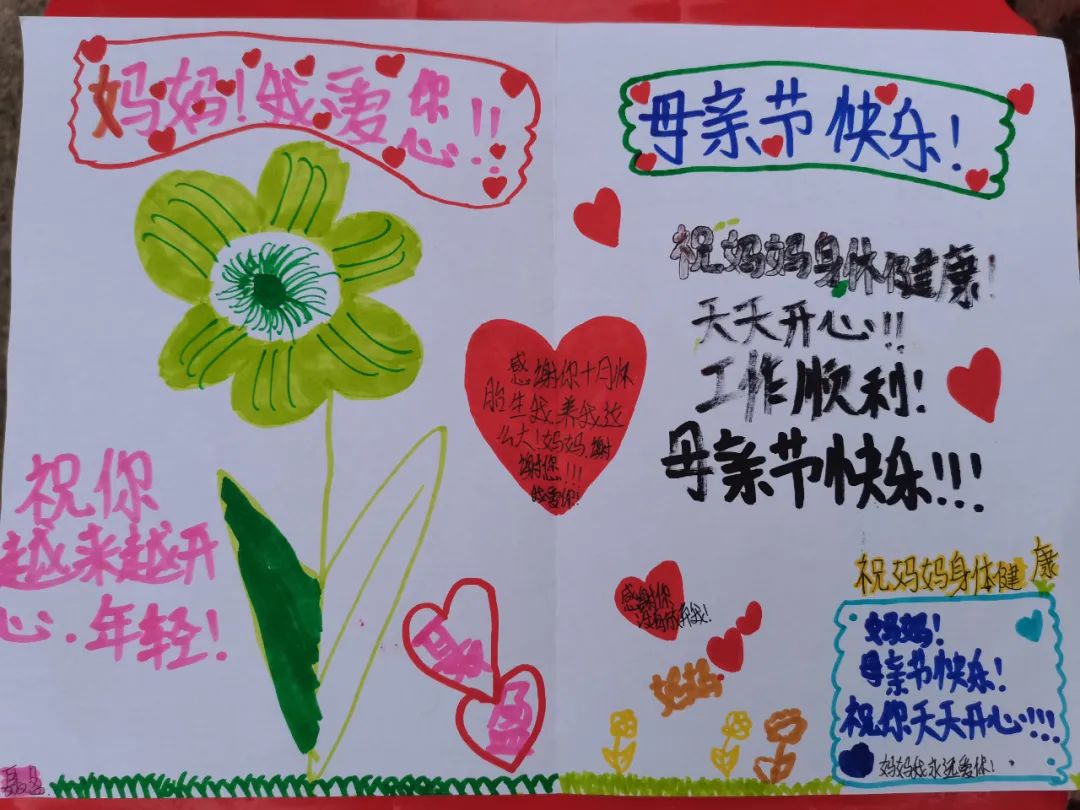 妈妈！我爱
你
您!!
祝你
越来越开
心.年轻!
母亲节快乐!
祝妈妈身体健康!
天天开心!!
工作顺利!
母亲节快乐!!!
感谢你十月怀
胎生我养我这
么大!妈妈.谢
谢您!!!
我爱你!!
感谢你
没有放弃我!
妈妈
祝妈妈身体健康
妈妈!
母亲节快乐!
祝你天天开心!!!
妈妈我永远爱你!